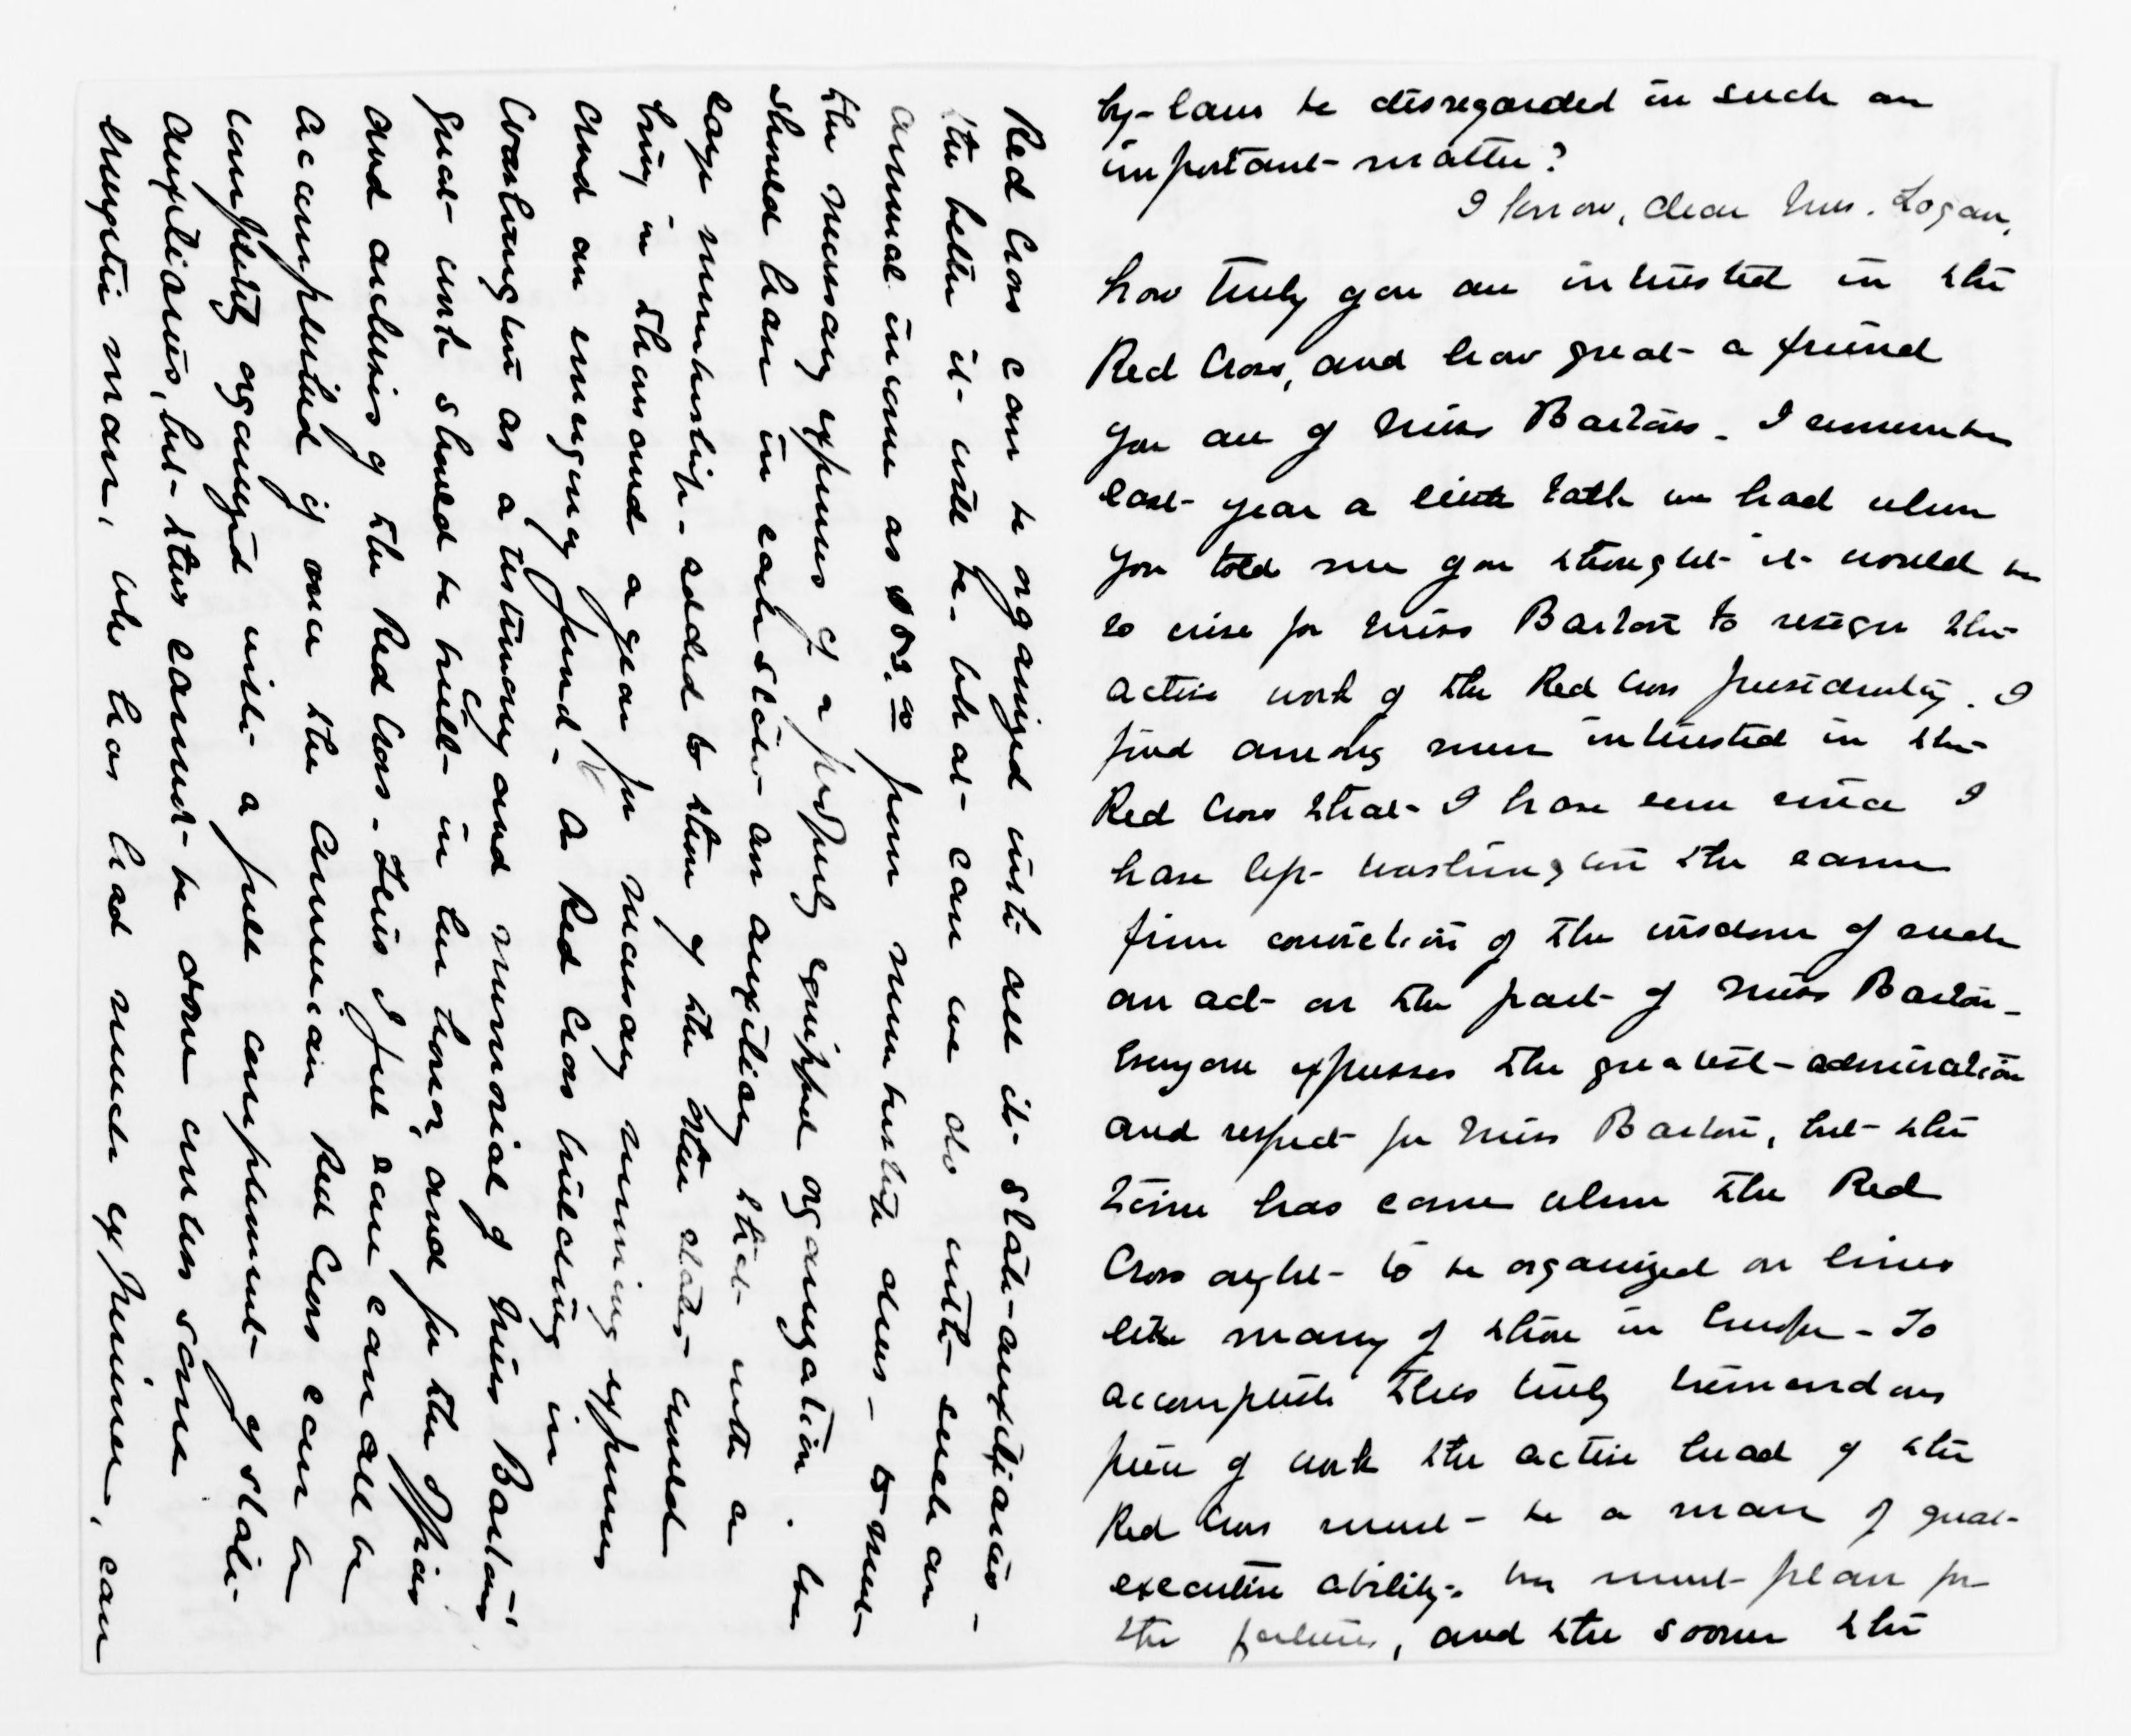 by-laws be disregarded in such an
important- matter?
I know, dear Mrs. Logan,
how truly you are interested in the
Red Cross, and how great- a friend
you are of Miss Barton's. I remember
last- year a little talk we had when
you told me you thought it- would be
so wise for Miss Barton to resign the
active work of the Red Cross presidentcy. I
find among men interested in the
Red Cross that- I have seen since I
have left- Washington the same
firm conviction of the wisdom of such
an act- on the part- of Miss Barton_
Everyone expresses the greatest- admiration
and respect- for Miss Barton, but- the
time has come when the Red
Cross ought- to be organized on lines
like many of those in Europe - To
accomplish this truly tremendous
piece of work the active head of the
Red Cross must- be a man of great-
executive ability - he must- plan for
the future, and the sooner the
Red Cross can be organized with all its- state-auxiliaries -
the better it- will be. What- can we do with such an
annual income as $52.00 from membership dues - to meet-
the necessary expenses of a properly equipped organization. We
should have in each state an auxiliary that- with a
large membership - added to them of the other states - would
bring in thousands a year for necessary running expenses
and an emergency fund - A Red Cross building in
Washington as a testimony and memorial of Miss Barton's
great- work should be built- in her honor, and for the offices
and archives of the Red Cross. This I feel sure can all be
accomplished if once the American Red Cross can be
completely organized with a full complement- of state-
auxiliaries, but- this cannot- be done unless some
energetic man, who has had much experience, can